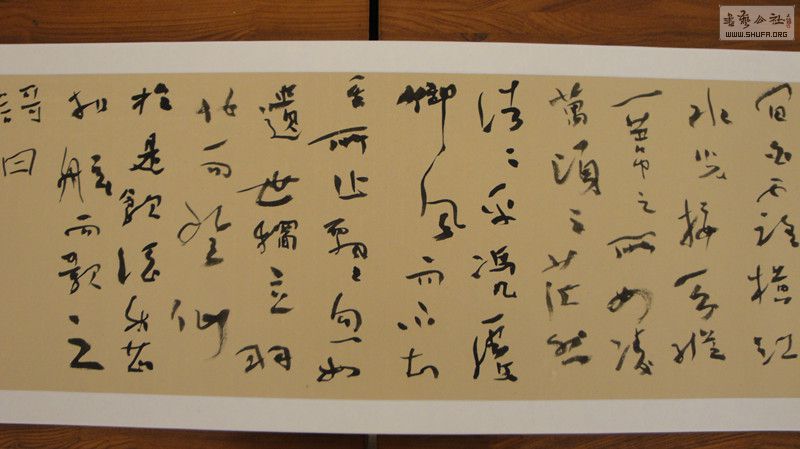 間白露橫江
水光接天縱
一葦之所如凌
萬頃之茫然
浩〻乎馮虛
御風而不知
其所止飄〻乎如
遺世獨立羽
化而登仙
於是飲酒樂甚
扣舷而歌之
謌曰
書藝公社
WWW.SHUFA.ORG